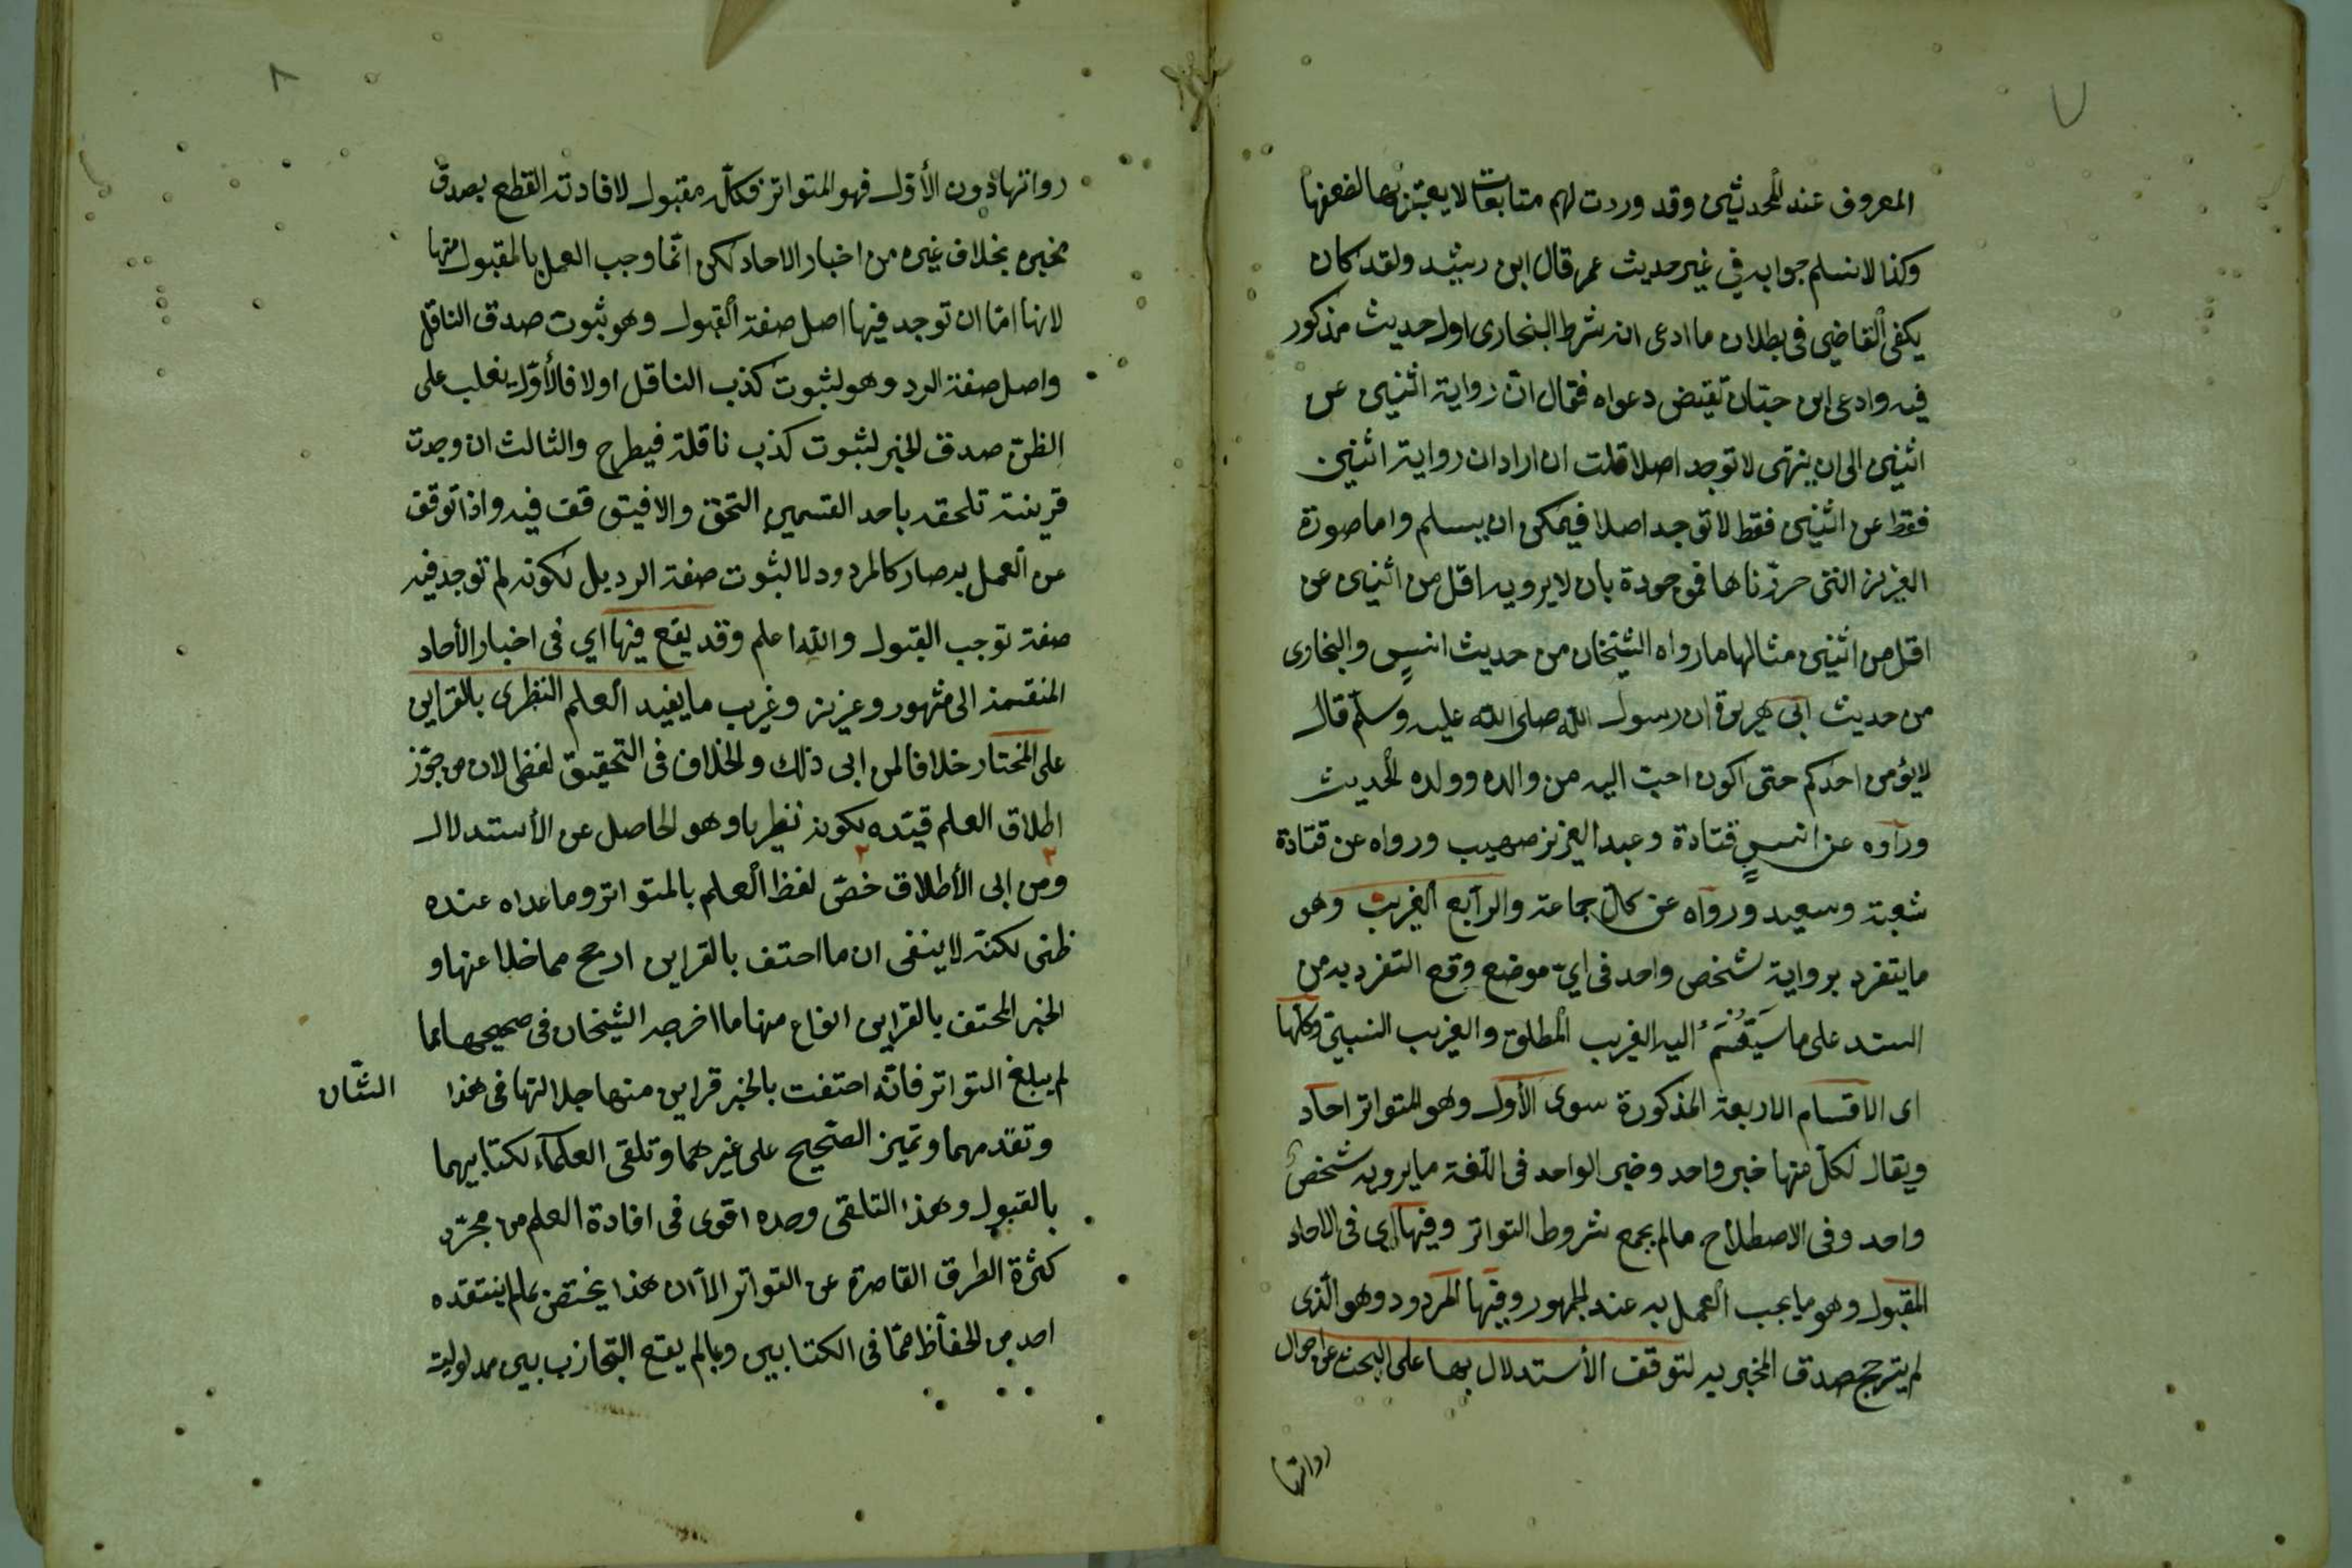 ٧
المعروف عند المحدثين وقد وردت لهم متابعات لا يعتبر بها لضعفها
وكذا لا نسلم جوابه في غير حديث عمر قال ابن رشيد ولقد كان
يكفى القاضي فى بطلان ما ادعى انه شرط البخارى اول حديث مذكور
فيه وادعى ابن حبّان نقيض دعواه فقال انّ رواية اثنين عن
اثنين الى ان ينتهى لا توجد اصلا قلت ان اراد ان رواية اثنين
فقط عن اثنين فقط لا توجد اصلا فيمكن ان يسلم واما صورة
العزيز التى حررناها فموجودة بان لا يرويه اقل من اثنين عن
اقل من اثنين مثالها ما رواه الشيخان من حديث انسٍ والبخارى
من حديث ابى هريرة ان رسول الله صلى الله عليه وسلّم قال
لا يؤمن احدكم حتى اكون احب اليه من والده وولده الحديث
ورواه عن انسٍ قتادة وعبد العزيز صهيب ورواه عن قتادة
شعبة وسعيد ورواه عن كلّ جماعة والرابع الغريب وهو
ما يتفرد بروايته شخص واحد فى ايّ موضع وقع التفرد به من
السند على ما سَيَقْسَمُ اليه الغريب المطلق والغريب النسبيّ وكلّها
اى الاقسام الاربعة المذكورة سوى الأول وهو المتواتر احاد
ويقال لكلّ منها خبر واحد وخبر الواحد فى اللّغة ما يرويه شخصٌ
واحد وفى الاصطلاح ما لم يجمع شروط التواتر وفيها اي فى الاحاد
المقبول وهو ما يجب العمل به عند الجمهور وفيها المردود وهو الّذى
لم يترجح صدق المخبر به لتوقف الأستدلال بها على البحث عن احوال
رواتها
٨
رواتها دون الأوّل فهو المتواتر فكلّه مقبول لافادته القطع بصدق
مخبره بخلاف غيره من اخبار الاحاد لكن انّما وجب العمل بالمقبول منها
لانها امّا ان توجد فيها اصل صفة القبول وهو ثبوت صدق الناقل
واصل صفة الرد وهو لثبوت كذب الناقل اولا فالأوّل يغلب على
الظنّ صدق الخبر لثبوت كذب ناقلة فيطرح والثالث ان وجدت
قرينة تلحقه باحد القسمين التحق والا فيتوقف فيه واذا توقف
عن العمل به صار كالمردود لا لثبوت صفة الرد بل لكونه لم توجد فيه
صفة توجب القبول والله اعلم وقد يقع فيها اي فى اخبار الأحاد
المنقسمة الى مشهور وعزيز وغريب ما يفيد العلم النظرى بالقراين
على المختار خلافا لمن ابى ذلك والخلاف فى التحقيق لفظى لان من جوّز
اطلاق العلم قيّده بكونه نظريا وهو الحاصل عن الأستدلال
ومن ابى الأطلاق خصّ لفظ العلم بالمتواتر وما عداه عنده
ظنى لكنّه لا ينفى ان ما احتف بالقراين ارجح مما خلا عنها و
الخبر المحتف بالقراين انواع منها ما اخرجه الشيخان فى صحيحهما مما
لم يبلغ التواتر فانّه احتفت بالخبر قراين منها جلالتها فى هذا الشّان
وتقدمهما وتميز الصّحيح على غيرهما وتلقى العلماء لكتابيهما
بالقبول وهذا التلقى وحده اقوى فى افادة العلم من مجرّد
كثرة الطرق القاصرة عن التواتر الّا ان هذا يختص بما لم ينتقده
احد من الحفّاظ ممّا فى الكتابين وبما لم يقع التجاذب بين مدلوليه